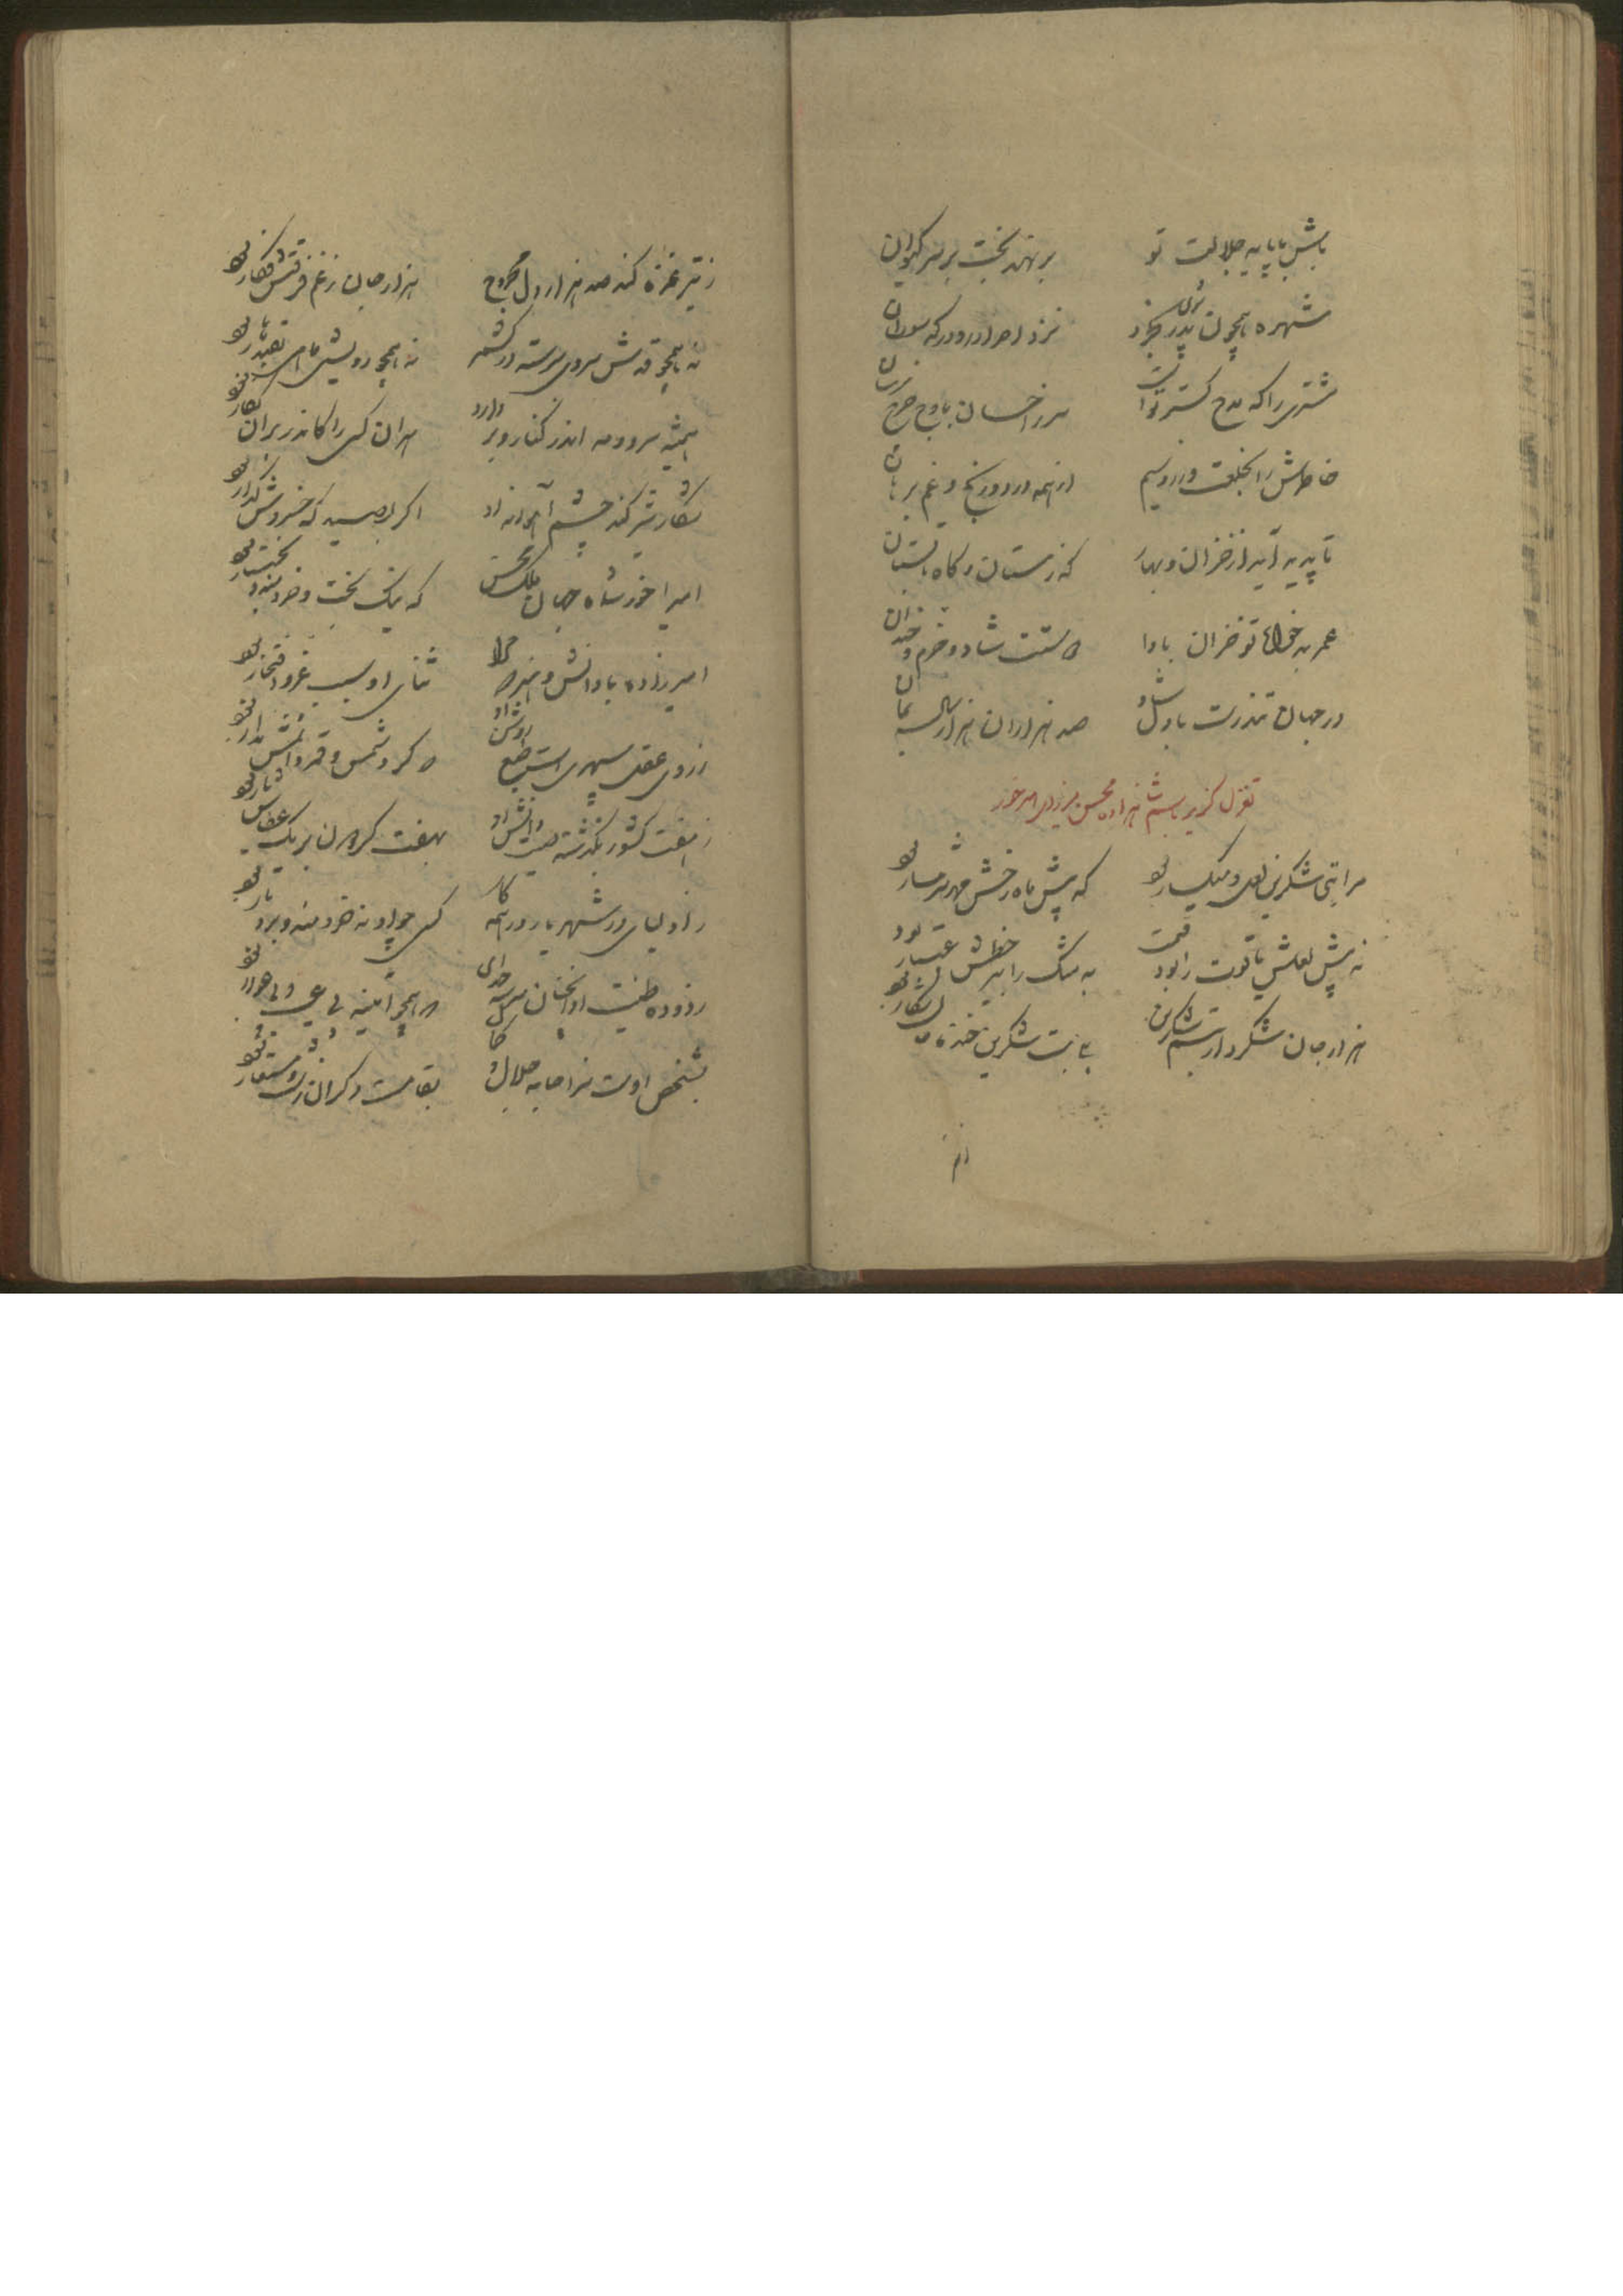 باش با پایه جلالت تو بر نهد تخت بر سر کیوان
شهره همچون پدر بجود نزد احرار و درگه
مشتری را که مدح گستر تو است سر ز احسان باوج چرخ رسان
خاطرش را بخلعت و زر و سیم از همه درد و رنج و غم برهان
تا پدید آید از خزان و بهار که زمستان و گاه تابستان
عمر بدخواه تو خزان بادا دوستت شاد و خرم و خندان
در جهان تندرست با دل شاد صد هزاران هزار سال بمان
تغزل گریز باسم شاهزاده محسن میرزای میرآخور
مرا بتی شکرین لعل و میگسار بود که پیش ماه رخش مهر شرمسار بود
نه پیش لعلش یاقوت را بود قیمت نه مشک را بر خطش اعتبار بود
هزار جان شکرد از تبسم شکرین بت شکرین خنده جان شکار بود
ز تیر غمزه کند صد هزار دل مجروح هزار جان ز غم فرقتش فکار بود
نه همچو قدش سروی برسته در کشمر نه همچو رویش ماهی بقندهار بود
همیشه سرو و مه اندر کنار و بر دارد هر آن کسی را کاندر بر آن نگار بود
شکار شیر کند چشم آهوانه او اگر بصید گه خسروش گذار بود
امیر آخور شاه جهان ملک محسن که نیک بخت و خردمند و بختیار بود
امیرزاده با دانش و هنر که ثنای او سبب عز و افتخار بود
ز روی عقل سپهری است طبع روشن او که گرد شمس و قمر دانشش مدار بود
ز هفت کشور بگذشته صیت دانش او بهفت گردون بر یک
ز اولیای در شهریار در همه کار کسی چو او نه خردمند و بردبار بود
زدوده طینت او آنچنان سرشته خدای که همچو آینه بی عیب و بی عوار بود
بشخص اوست سزا جامه جلال بقامت دگران زشت و مستعار بود